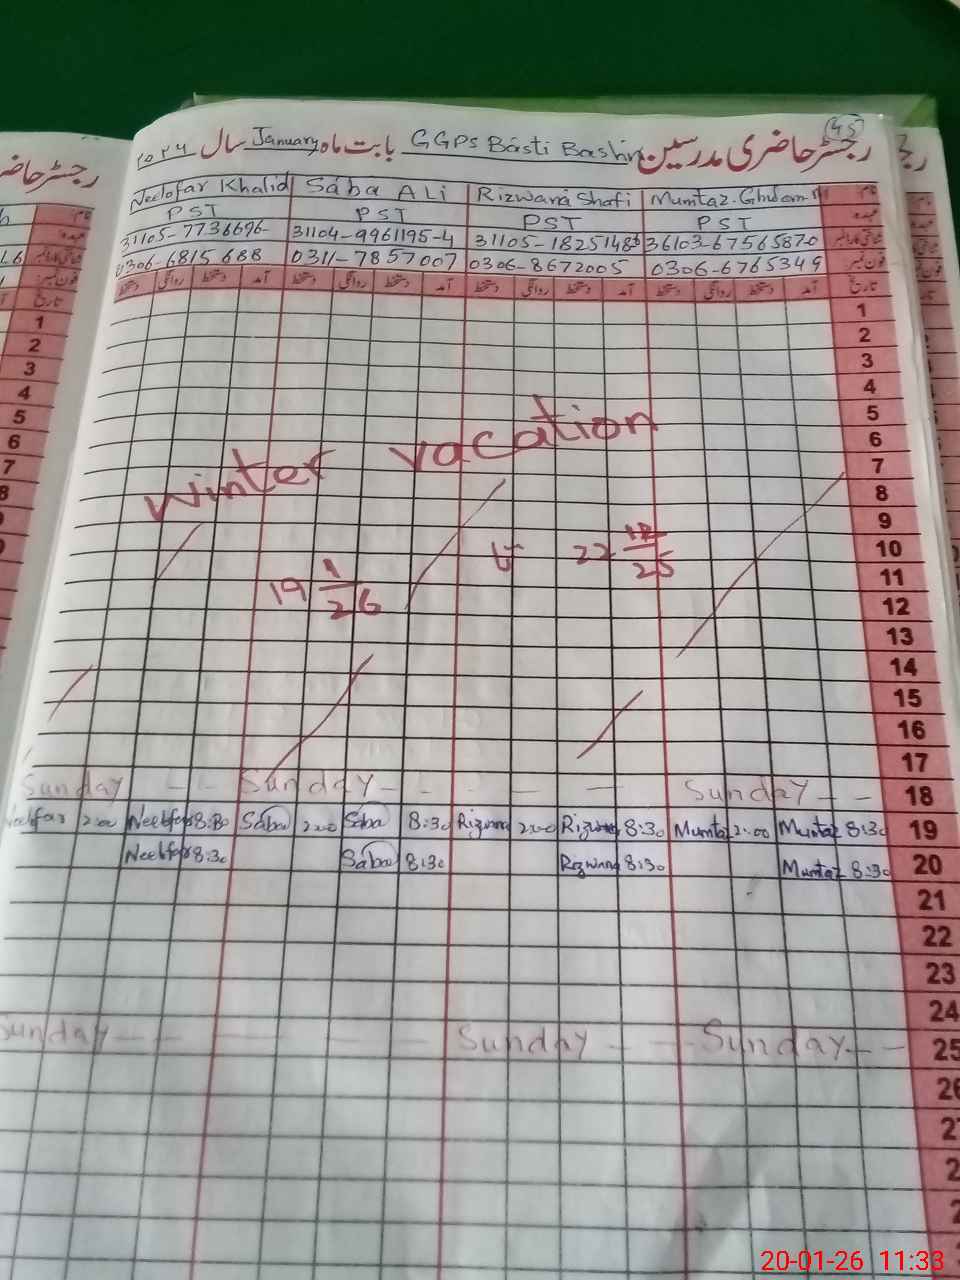 45
رجسٹر حاضری مدرسین GGPS Basti Bashir بابت ماہ January سال ۲۰۲۶
Neelofar Khalid Saba ALi Rizwana Shafi Mumtaz Ghulam نام:
PST PST PST PST عہدہ:
31105-7736696- 31104-9961195-4 31105-1825148 36103-6756587-0
0306-6815688 0311-7857007 0306-8672005 0306-6765349 فون نمبر:
دستخط روانگی دستخط آمد دستخط روانگی دستخط آمد دستخط روانگی دستخط آمد دستخط روانگی دستخط آمد تاریخ
1
2
3
4
5
6
7
8
9
10
11
12
13
14
15
16
17
Winter vacation
22 12/25 تا 19 1/26
Sunday - - Sunday - - - - - Sunday - - 18
Neelofar 2:00 Neelofar 8:30 Saba 2:00 Saba 8:30 Rizwana 2:00 Rizwana 8:30 Mumtaz 2:00 Mumtaz 8:30 19
Neelofar 8:30 Saba 8:30 Rizwana 8:30 Mumtaz 8:30 20
21
22
23
24
Sunday - - - - - - Sunday - - Sunday - - 25
رجسٹر حا
1
2
3
4
5
6
7
8
20-01-26 11:33